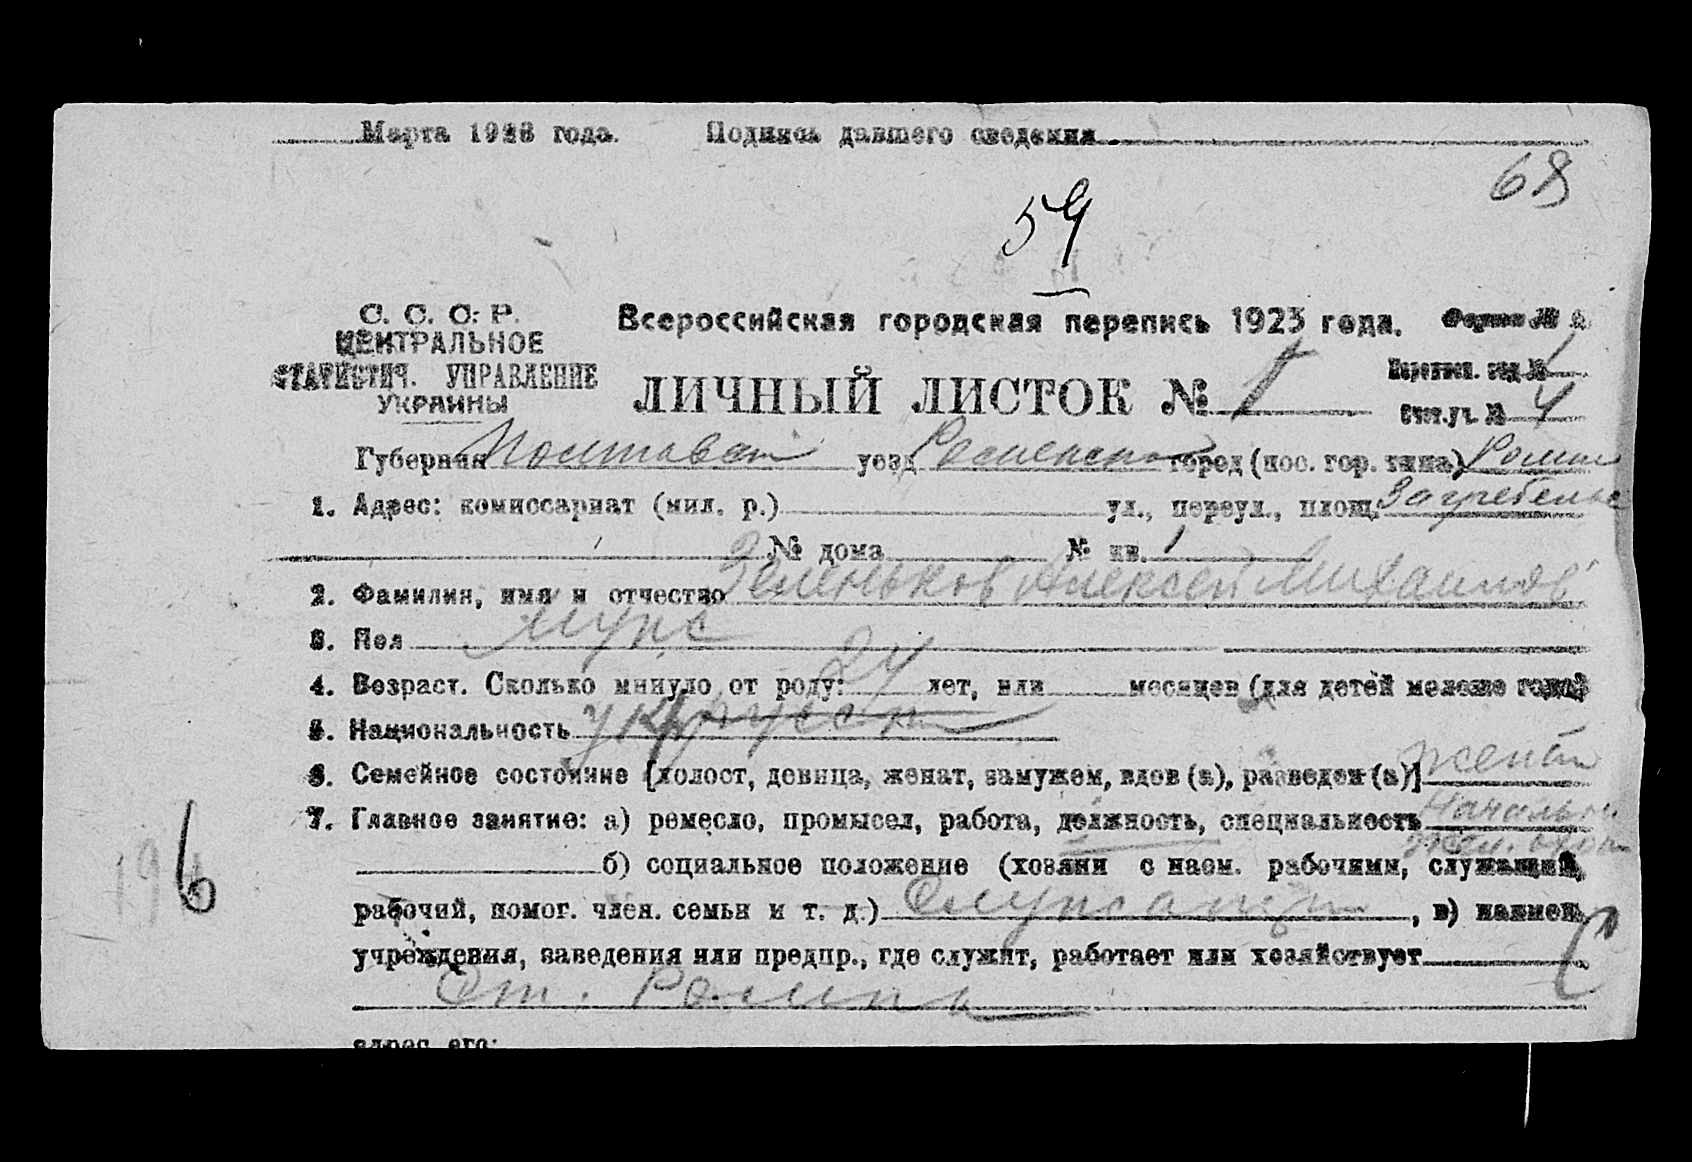 Марта 1923 года. Подпись давшего сведения
68
59
С. С. С. Р.
ЦЕНТРАЛЬНОЕ
СТАТИСТИЧ. УПРАВЛЕНИЕ
УКРАИНЫ
Всероссийская городская перепись 1923 года. Форма № 2
ЛИЧНЫЙ ЛИСТОК № 1
Переписн. отд. № 1
Счет. уч. № 4
Губерния Полтавск уезд Роменский город (пос. гор. типа) Ромны
1. Адрес: комиссариат (мил. р.) ул., переул., площ. Загребельн
№ дома № кв. 1
2. Фамилия, имя и отчество Зеленьков Алексей Михаилов
3. Пол муж
4. Возраст. Сколько минуло от роду: 24 лет, или месяцев (для детей моложе года)
5. Национальность укр
6. Семейное состояние [холост, девица, женат, замужем, вдов (а), разведен (а)] женат
7. Главное занятие: а) ремесло, промысел, работа, должность, специальность Начальн.
жел.
б) социальное положение (хозяин с наем. рабочими, служащий,
рабочий, помог. член. семьи и т. д.) Служащий, в) наимен.
учреждения, заведения или предпр., где служит, работает или хозяйствует
Ст. Ромны
адрес его:
6